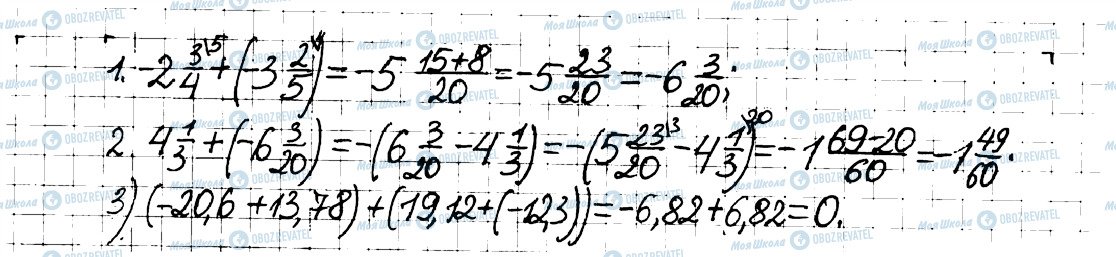 1. -2 3/4 \5 + (-3 2/5 \4) = -5 (15+8)/20 = -5 23/20 = -6 3/20;
2. 4 1/3 + (-6 3/20) = -(6 3/20 - 4 1/3) = -(5 23/20 \3 - 4 1/3 \20) = -1 (69-20)/60 = -1 49/60.
3) (-20,6 + 13,78) + (19,12 + (-12,3)) = -6,82 + 6,82 = 0.